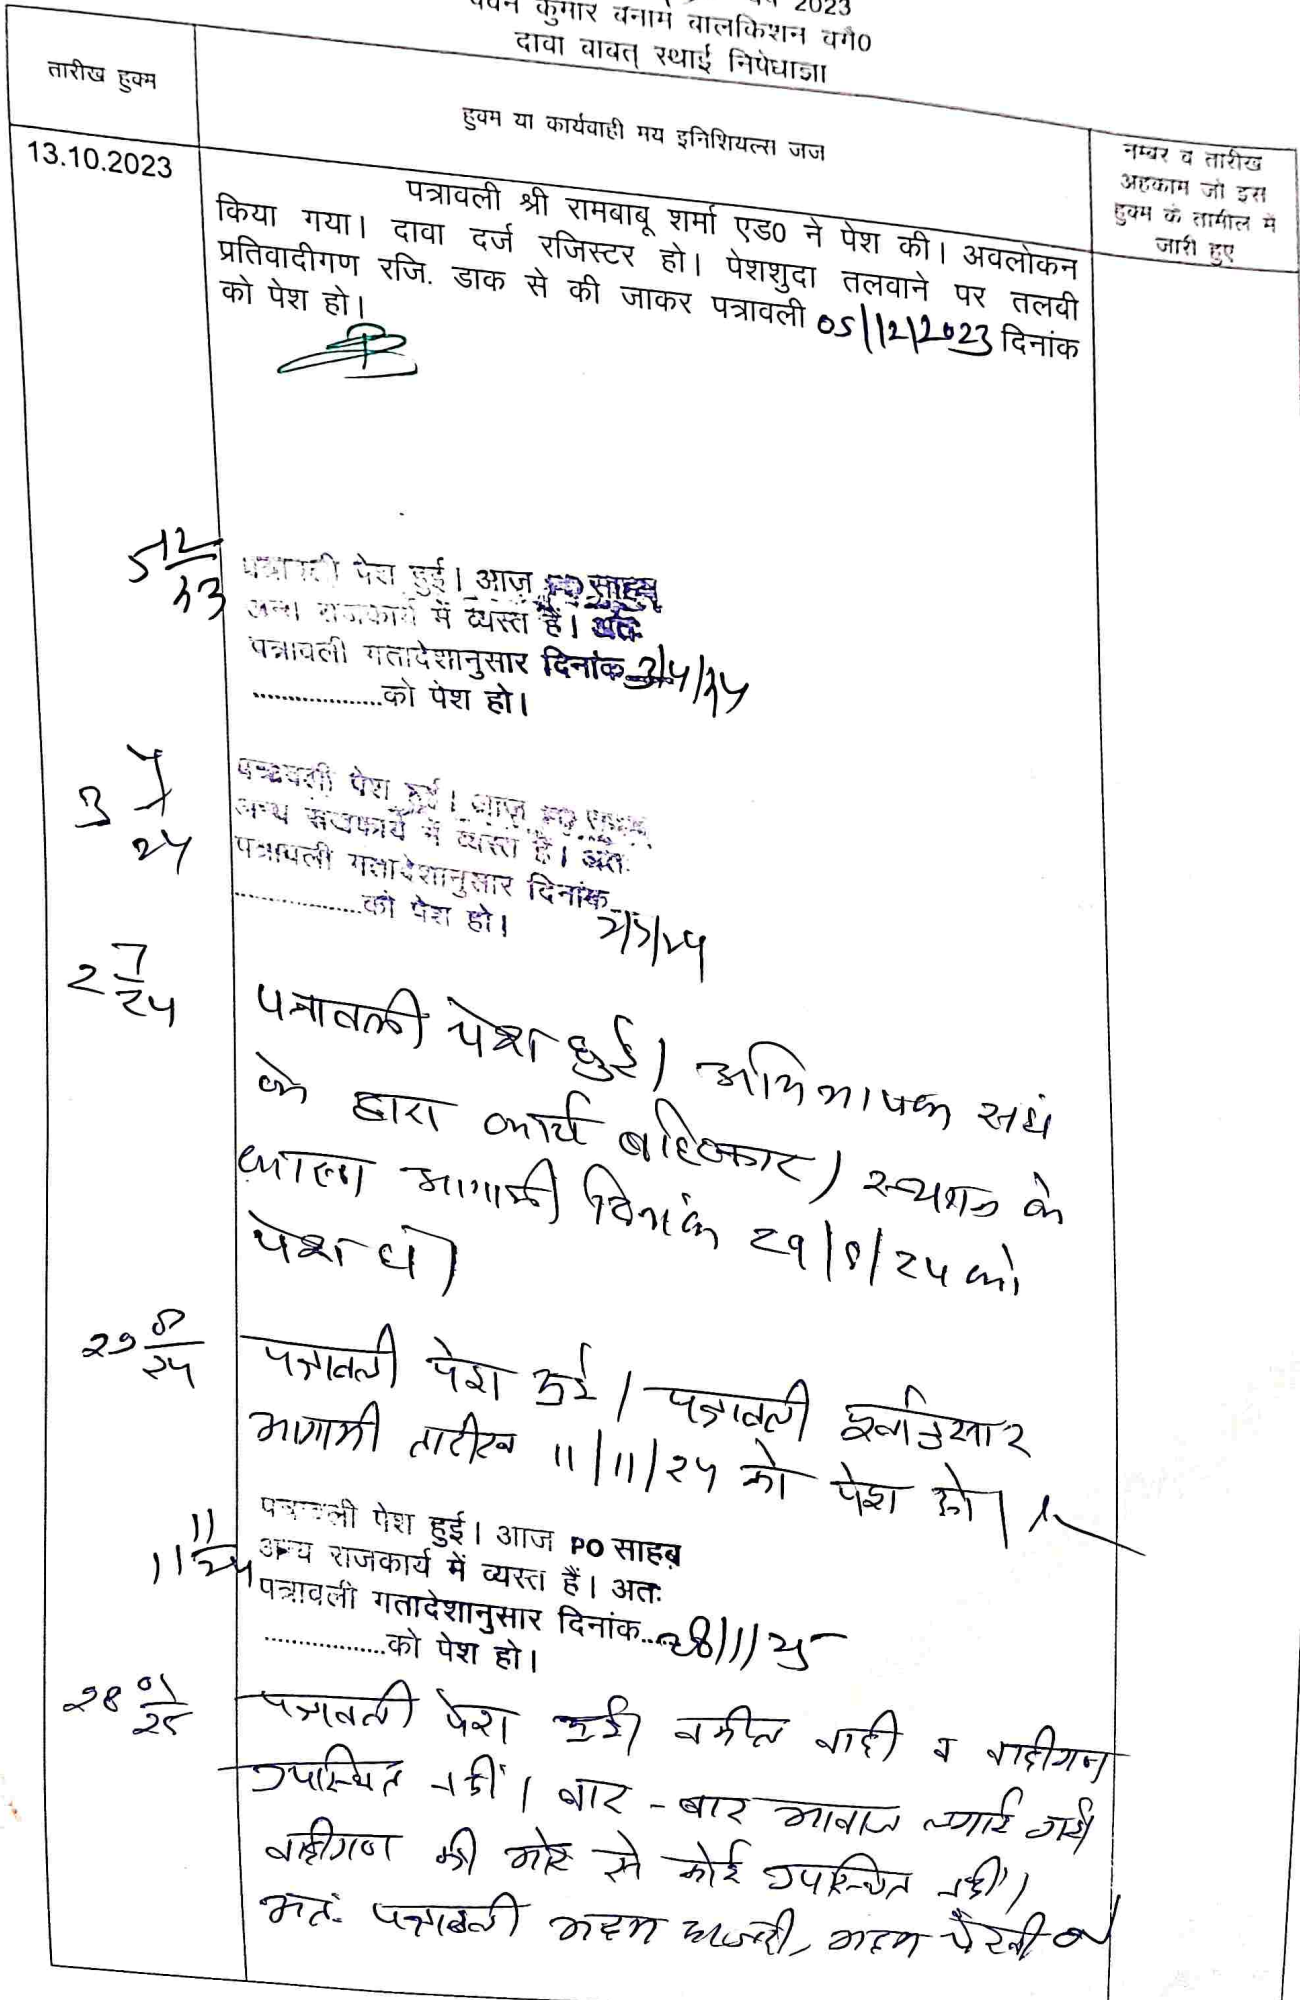 2023
पवन कुमार बनाम बालकिशन वगै0
दावा बाबत् स्थाई निषेधाज्ञा
तारीख हुक्म
हुक्म या कार्यवाही मय इनिशियल्स जज
नम्बर व तारीख
अहकाम जो इस
हुक्म के तामील में
जारी हुए
13.10.2023
पत्रावली श्री रामबाबू शर्मा एड0 ने पेश की। अवलोकन
किया गया। दावा दर्ज रजिस्टर हो। पेशशुदा तलवाने पर तलवी
प्रतिवादीगण रजि. डाक से की जाकर पत्रावली 05/12/2023 दिनांक
को पेश हो।
5 12/23
पत्रावली पेश हुई। आज PO साहब
अन्य राजकार्य में व्यस्त हैं। अतः
पत्रावली गतादेशानुसार दिनांक 3/4/24
..................को पेश हो।
3 4/24
पत्रावली पेश हुई। आज PO साहब
अन्य राजकार्य में व्यस्त हैं। अतः
पत्रावली गतादेशानुसार दिनांक
..................को पेश हो। 2/7/24
2 7/24
पत्रावली पेश हुई। अभिभाषक संघ
के द्वारा कार्य बहिष्कार। स्थगन के
कारण आगामी दिनांक 29/8/24 को
पेश हो।
29 8/24
पत्रावली पेश हुई। पत्रावली पूर्वानुसार
आगामी तारीख 11/11/24 को पेश हो।
11 11/24
पत्रावली पेश हुई। आज PO साहब
अन्य राजकार्य में व्यस्त हैं। अतः
पत्रावली गतादेशानुसार दिनांक.....28/1/25
..................को पेश हो।
28 01/25
पत्रावली पेश हुई। वकील वादी व वादीगण
उपस्थित नहीं। बार-बार आवाज लगाई गयी
वादीगण की ओर से कोई उपस्थित नहीं।
अतः पत्रावली अदम हाजरी, अदम पैरवी में